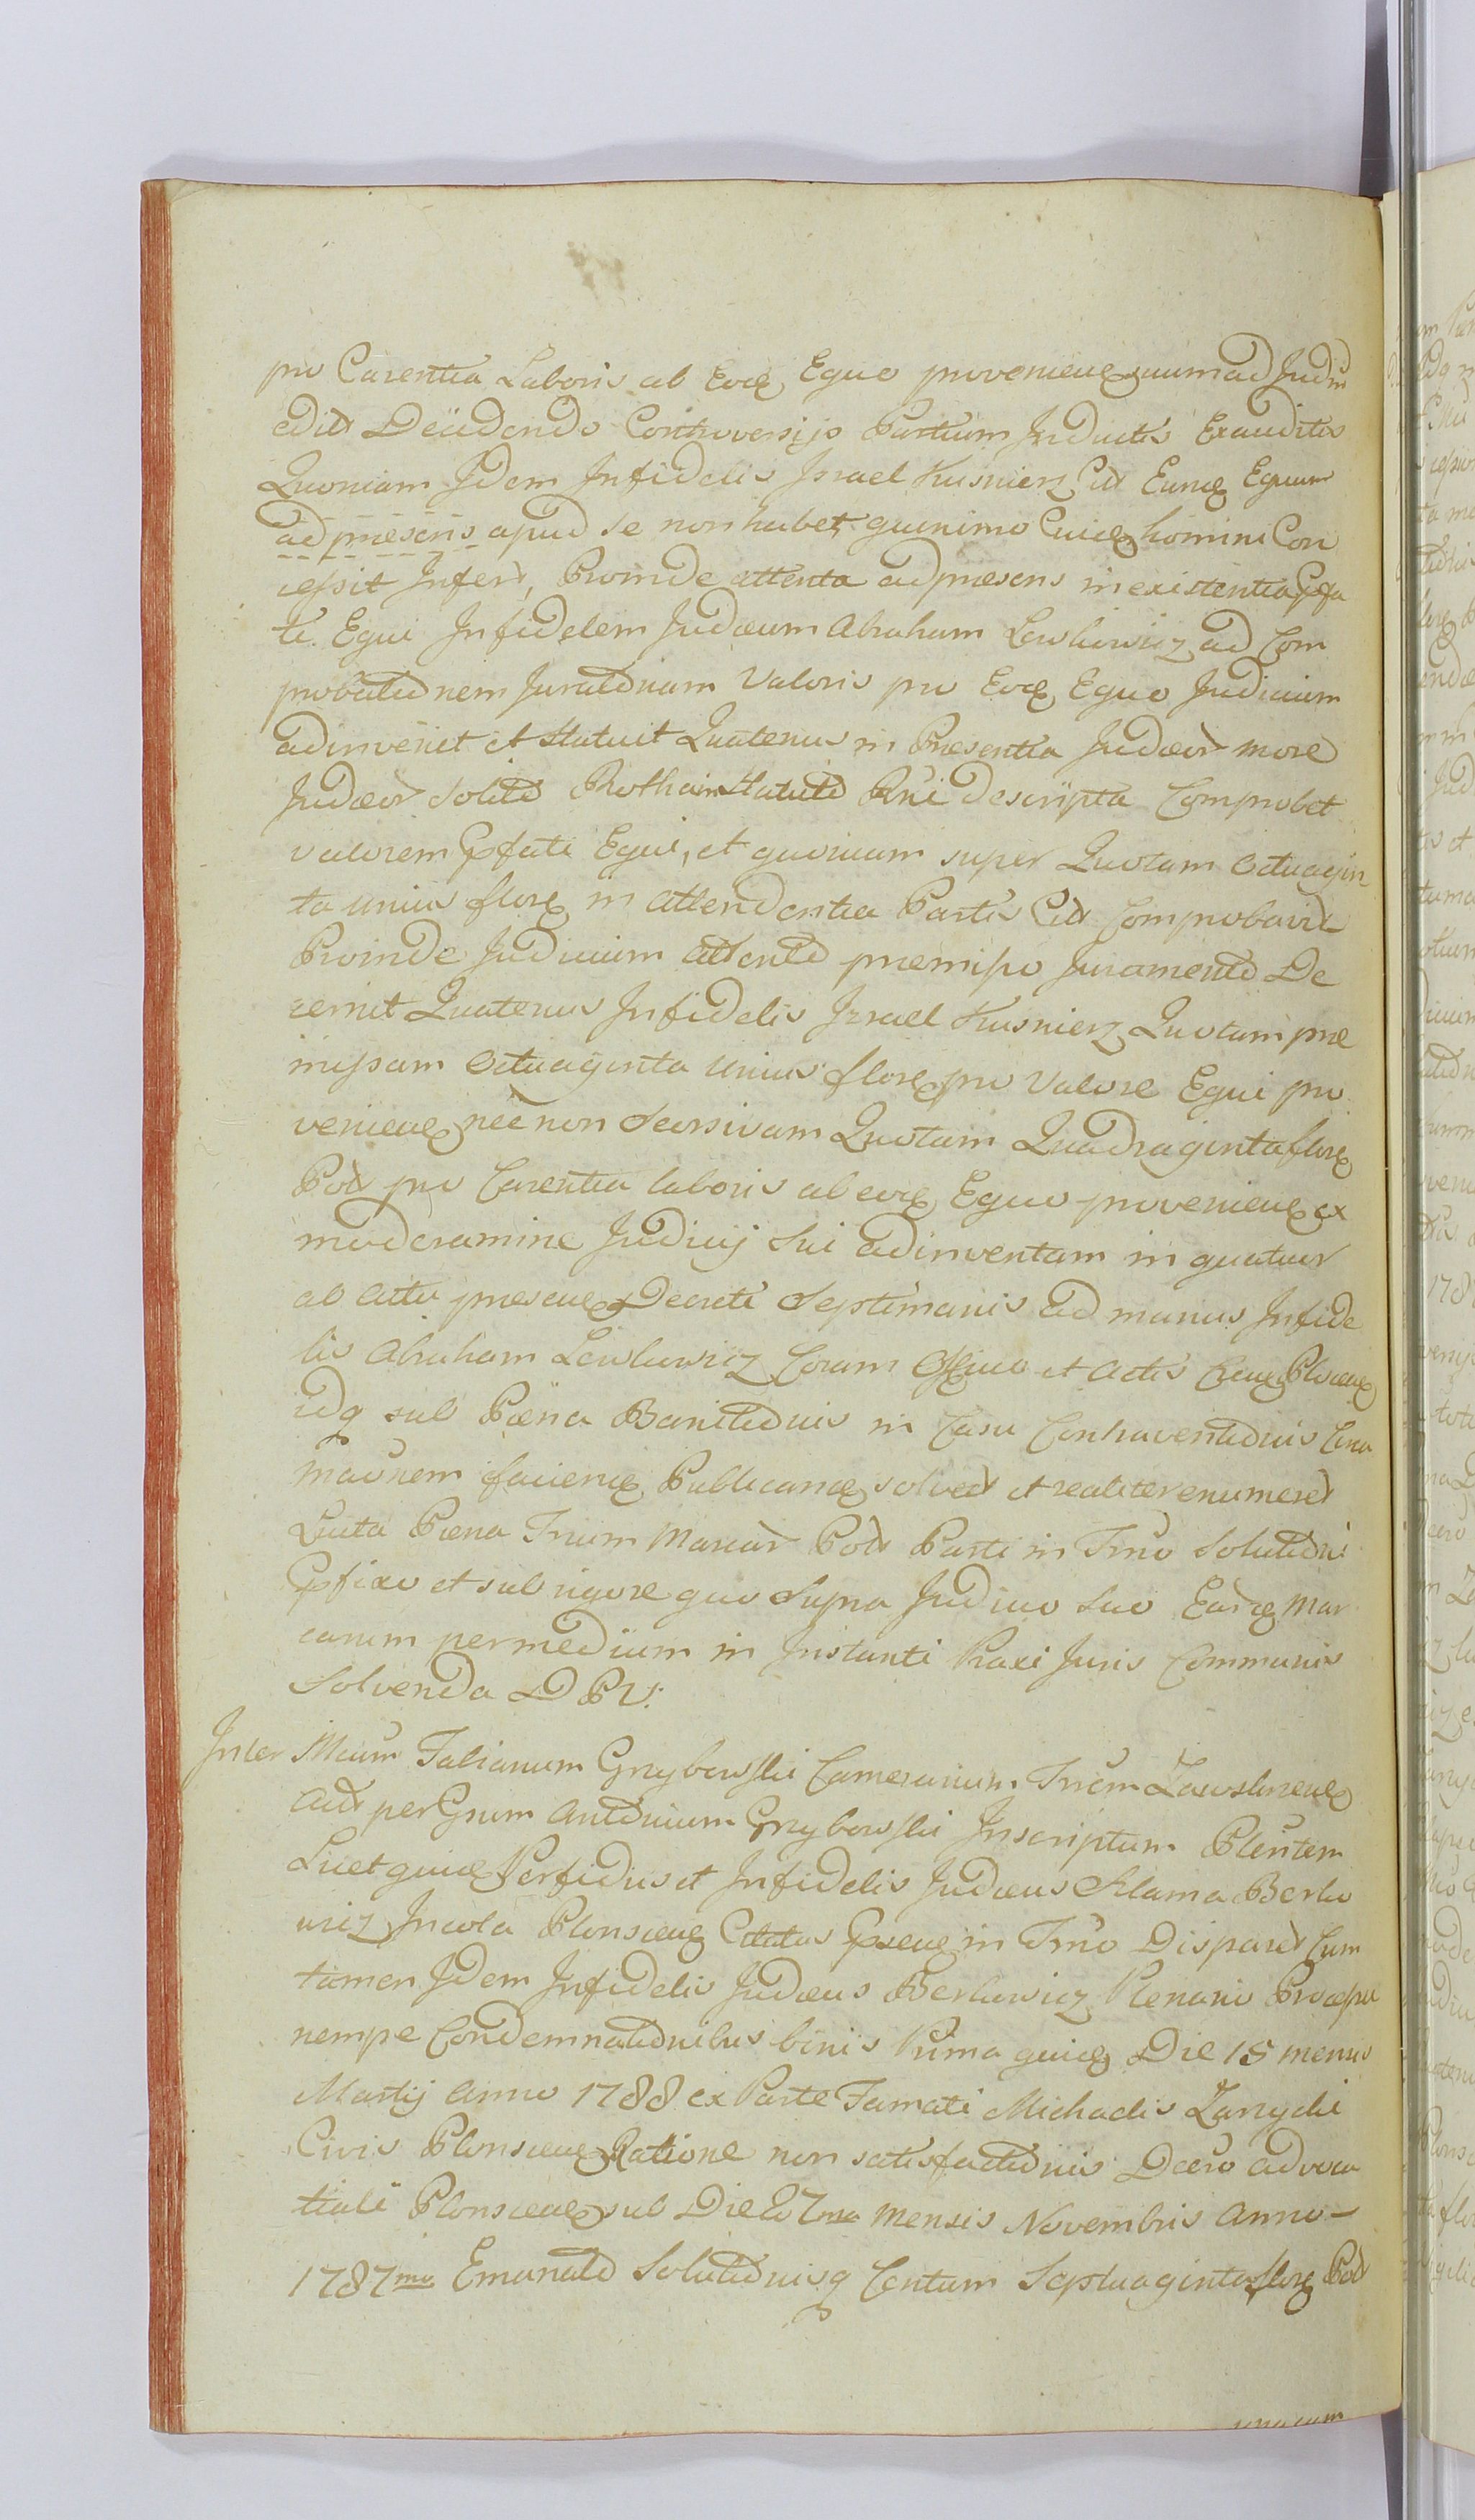 pro Carentia Laboris ab Eodē Equo provenieñ suum ad Judm
edit Decidendo Controversijs Partium Inductis Exauditis
Quoniam Idem Infidelis Israel Kusnierz Cit Eundē Equum
ad præsens apud se non habet, quinimo Cuidē homini Con
cessit Infert, Proinde attenta ad præsens inexistentia Præfa
ti Equi Infidelem Judæum Abraham Lewkowicz ad Com
probationem Juratoriam Valoris pro Eodē Equo Judicium
adinvenit et Statuit Quatenus in Præsentia Judæor more
Judæor Solito Rotha in Statuto Rni descripta Comprobet
valorem Præfati Equi, et quoniam super Quotam Octuagin
ta unius floren in attendentia Partis Cit Comprobavit
Proinde Judicium attento præmisso Juramento De
cernit Quatenus Infidelis Izrael Kusnierz Quotam præ
missam Octuaginta Unius floren pro Valore Equi pro
venieñ nec non Seorsivam Quotam Quadraginta floren
Pol pro Carentia laboris ab eodē Equo provenieñ ex
moderamine Judicij Sui adinventam in quatuor
ab Actu præseñ Decreti Septimanis ad manus Infide
lis Abraham Lewkowicz Coram Officio et Actis Castr Ploceñ
idq sub Pæna Banitionis in Casu Contraventionis
faciendē Publicandē solvat et realiter enumeret
Luita Pæna Trium Marcar Pol Parti in Trno Solutioni
Præfixo et sub rigore quo Supra Judicio Suo Earundē Mar
carum per medium in Instanti Praxi Juris Communis
Solvenda DPV:
Inter Mcum Fabianum Grzybowski Camerarium Trrem Zawskrzeñ
Act per Gnum Antonium Grzybowski Inscriptum Plentem
Licet quidē Perfidus et Infidelis Judæus Szlama Berko
wicz Incola Plonsceñ Citatus Præseñ in Trno Disparet Cum
tamen Idem Infidelis Judæus Berkowicz Plenario Processu
nempe Condemnationibus binis Prima quidē Die 15 mensis
Martij Anno 1788 ex Parte Famati Michaelis Zanycki
Civis Plonsceñ Ratione non satisfactionis Dcreto advoca
tiali Plonsceñ sub Die 27ma mensis Novembris Anno –
1787mo Emanato Solutionisq Centum Septuaginta floren Pol
unacum